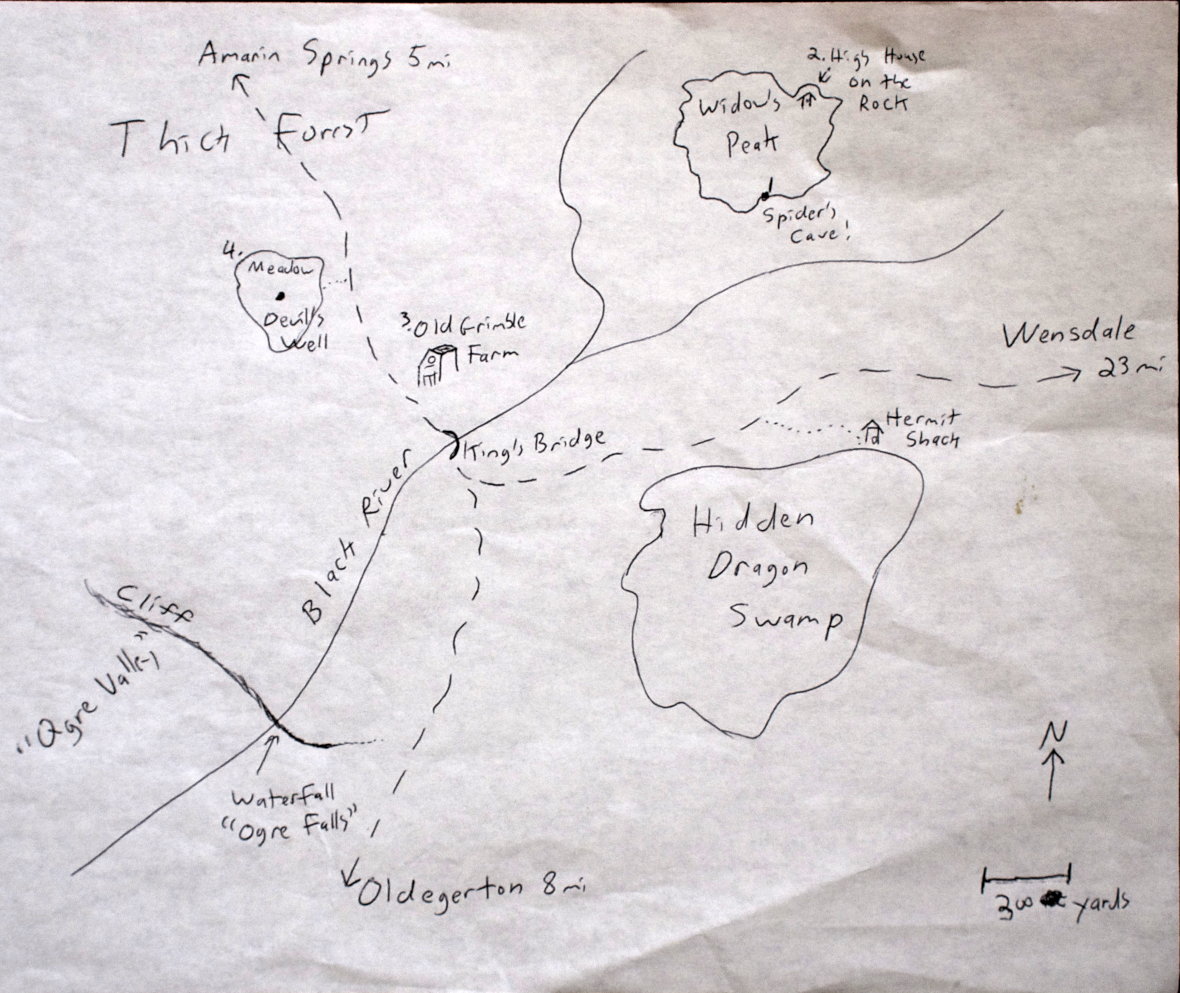 Amarin Springs 5 mi
Thick Forest
2. High House
on the
Rock
Widow's
Peak
1
Spider's
Cave!
4.
Meadow
Devil's
Well
3. Old Grimble
Farm
Wensdale
23 mi
Hermit
Shack
King's Bridge
Black River
Hidden
Dragon
Swamp
Cliff
"Ogre Valley"
Waterfall
"Ogre Falls"
Oldegerton 8 mi
N
300 yards